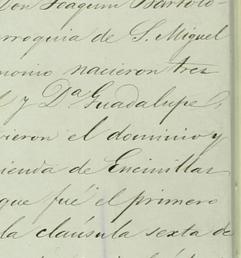 Don Joaquin Bartolo-
rroquia de S. Miguel
monio nacieron tres
l y Da. Guadalupe,
vieron el dominio y
ienda de Encinillas
que fué el primero
la cláusula sexta de